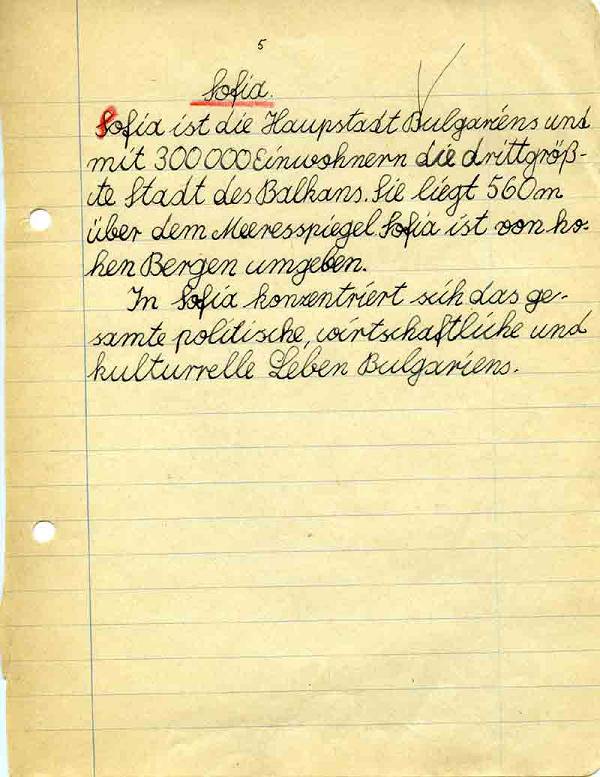 5
Sofia.
Sofia ist die Haupstadt Bulgariens und
mit 300000 Einwohnern die drittgröß-
te Stadt des Balkans. Sie liegt 560m
über dem Meeresspiegel. Sofia ist von ho-
hen Bergen umgeben.
In Sofia konzentriert sich das ge-
samte politische, wirtschaftliche und
kulturrelle Leben Bulgariens.